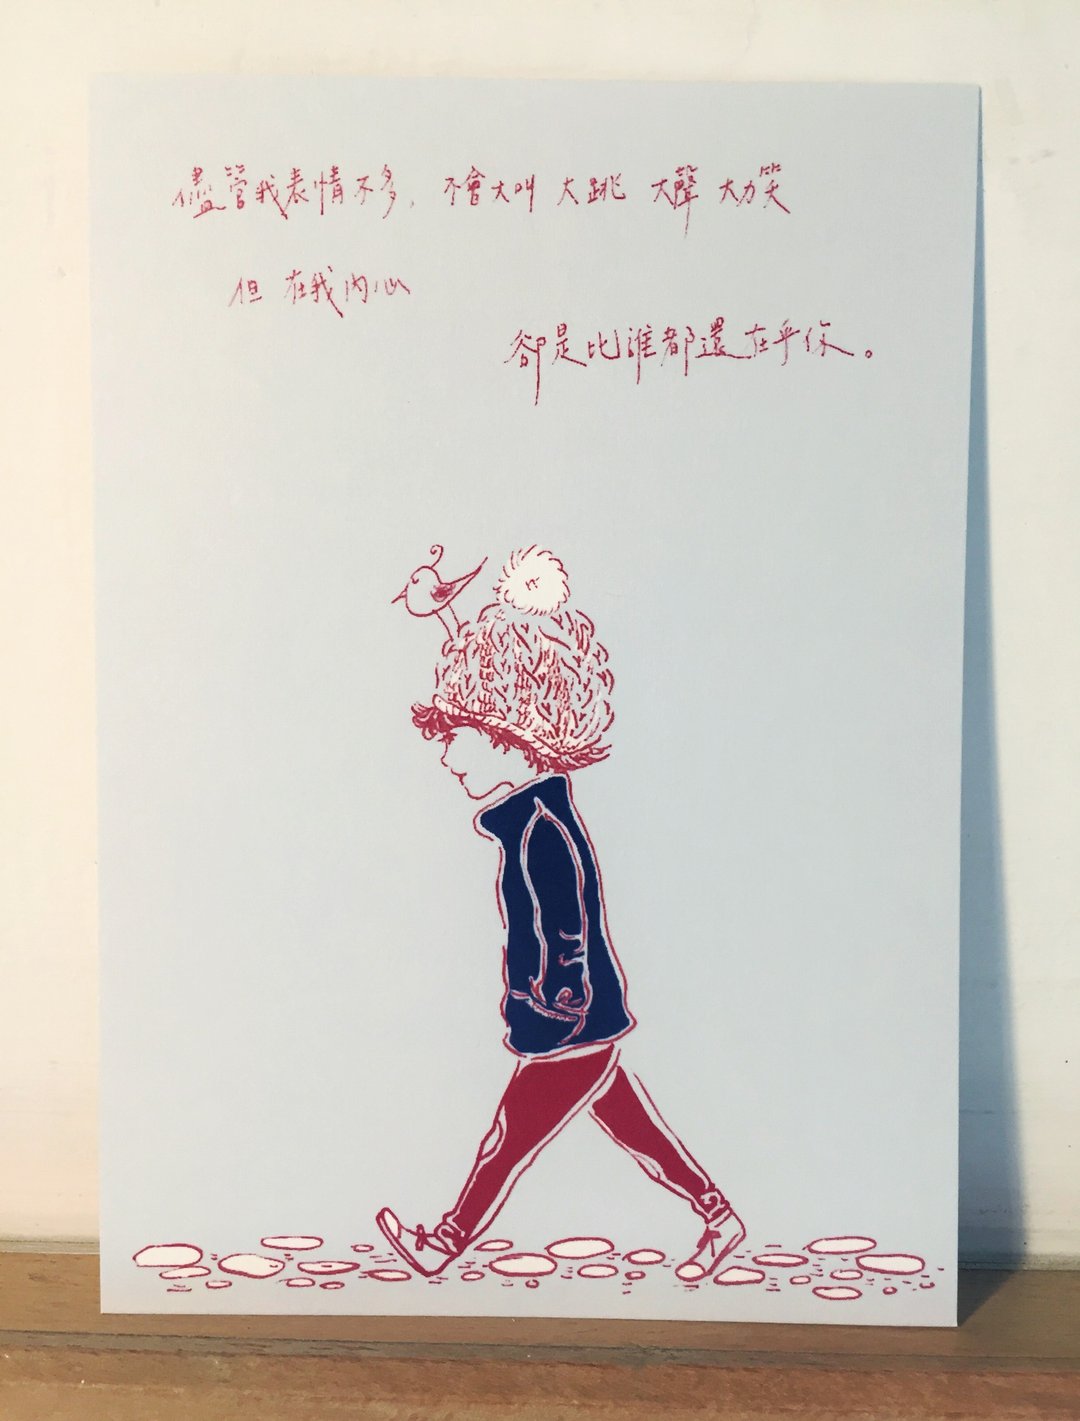 儘管我表情不多，不會大叫 大跳 大聲 大力笑
但 在我內心
卻是比誰都還在乎你。